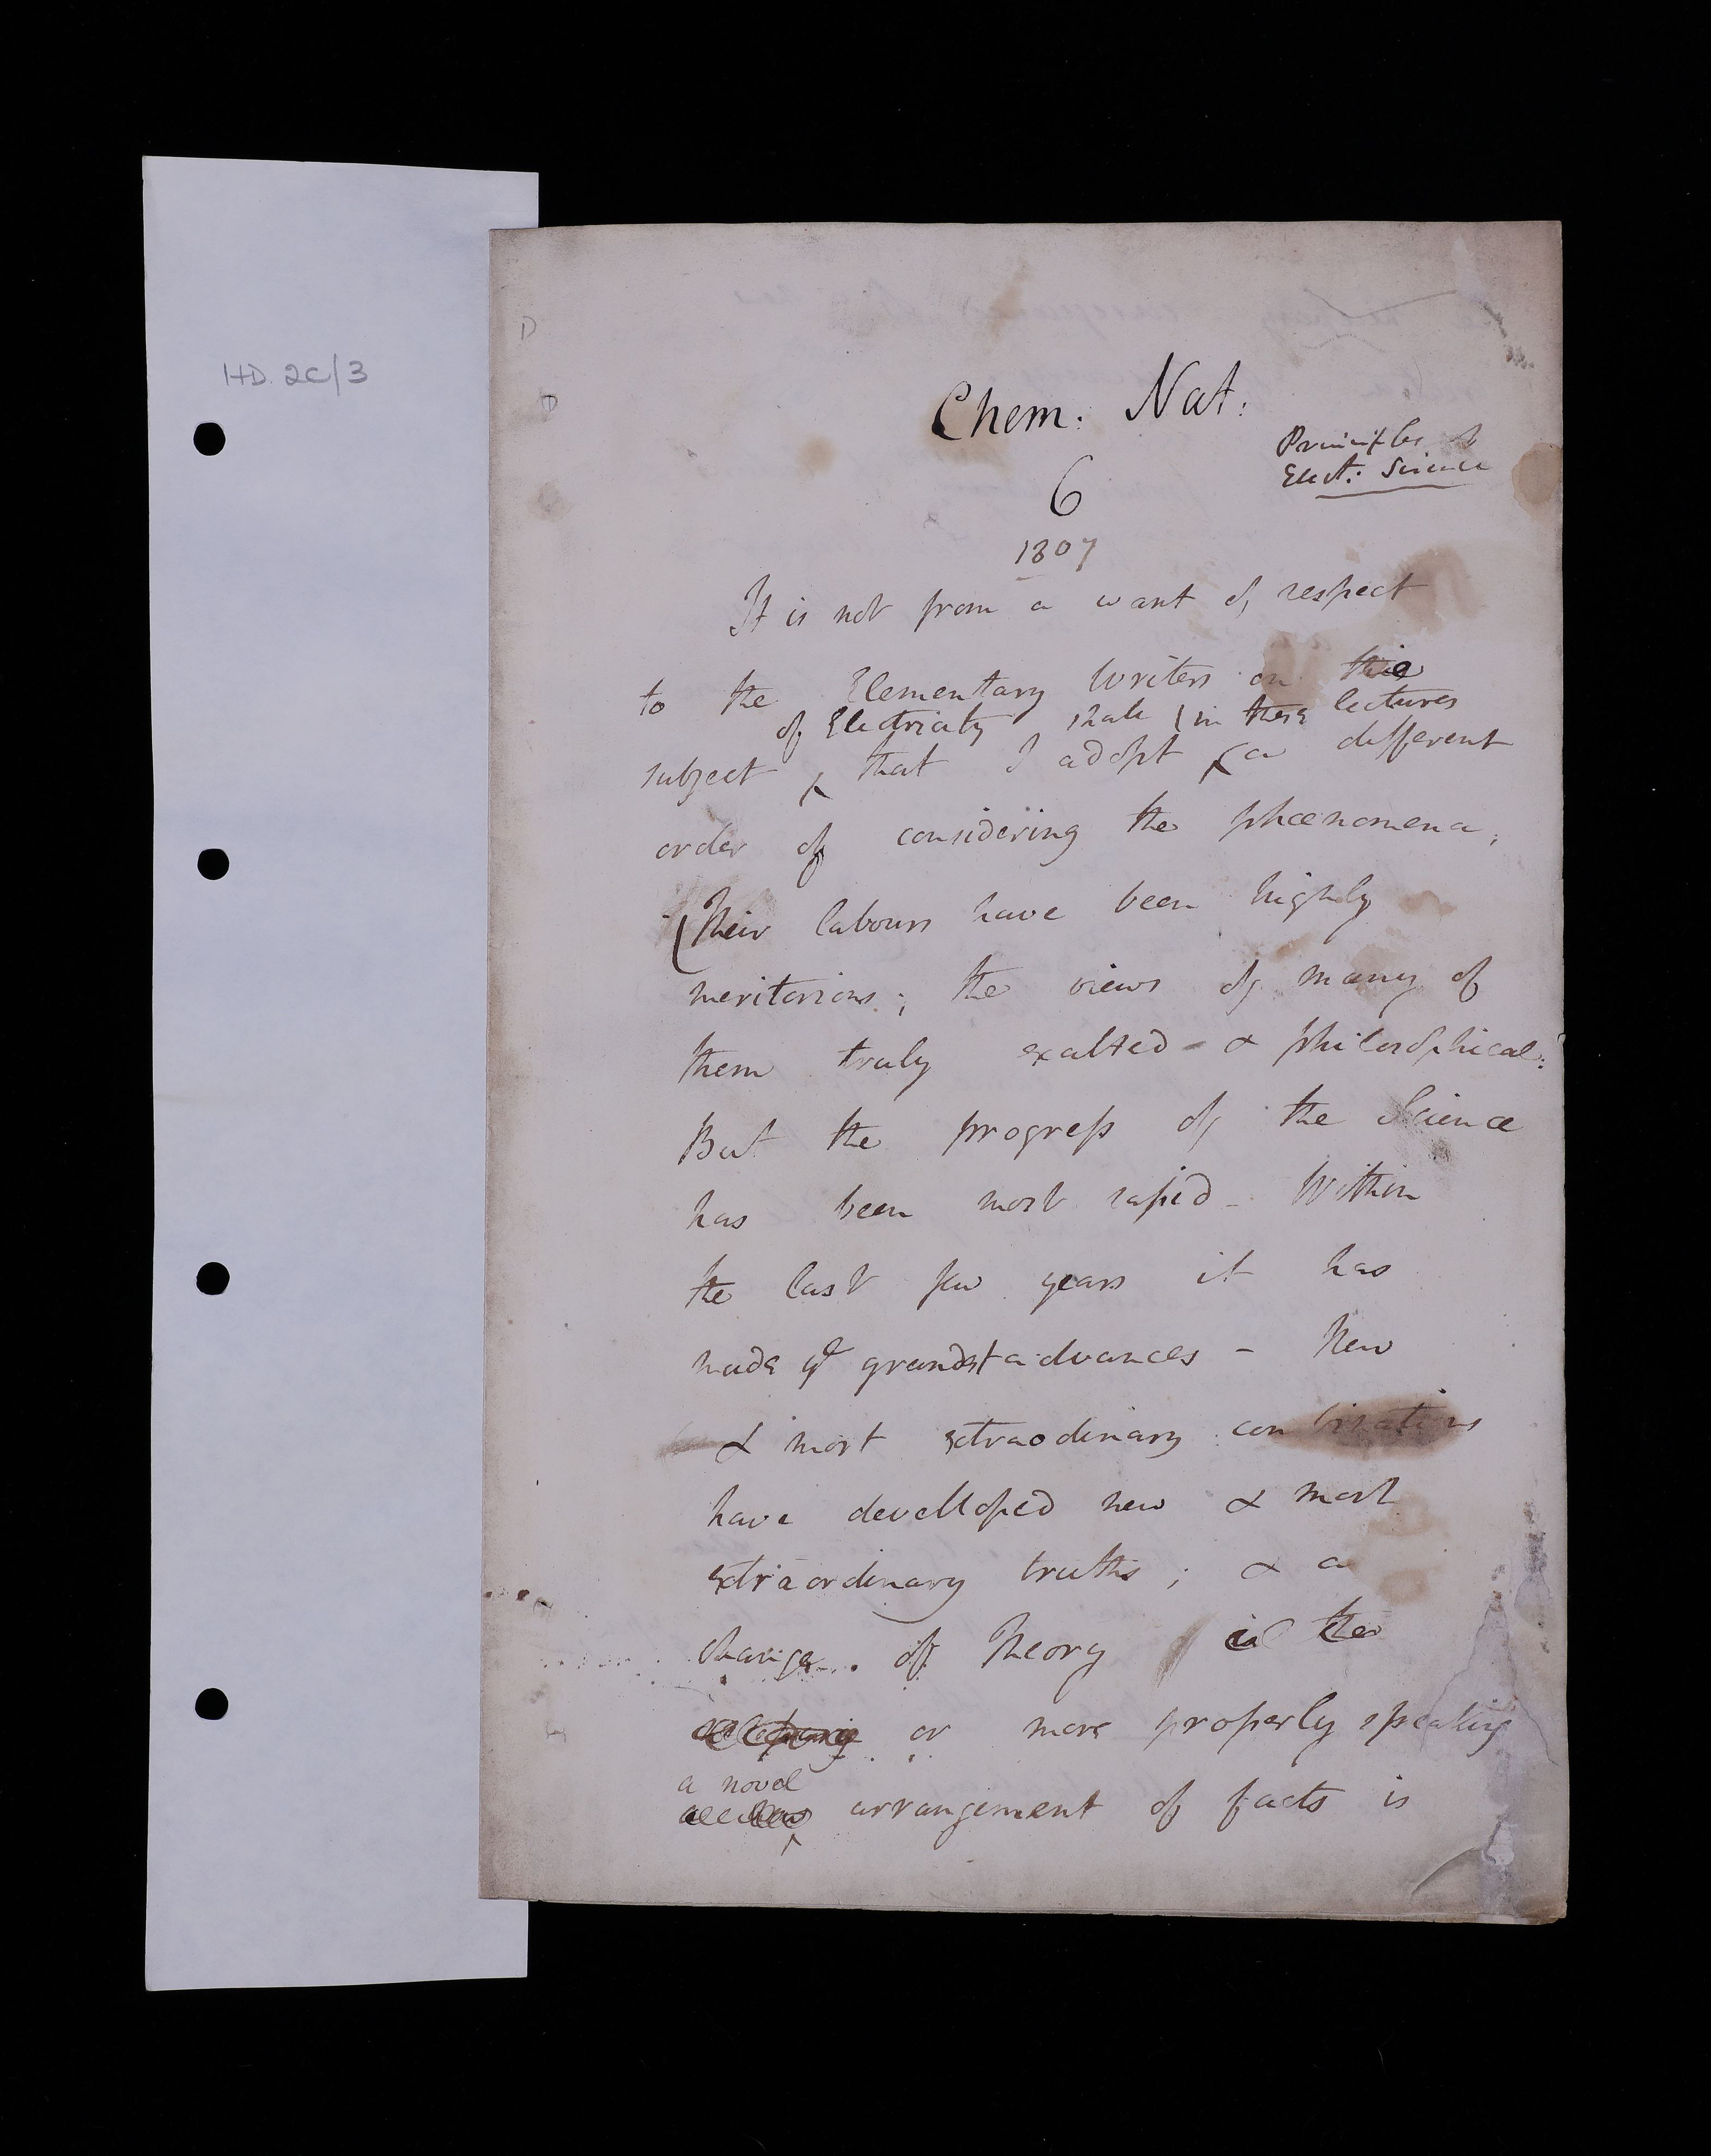 HD. 2C/3
D
D
Chem: Nat:
Principles of
Elect: Science
6
1807
It is not from a want of respect
to the Elementary Writers on the
of Electricity shall (in these lectures
subject that I adopt a different
order of considering the phœnomena;
(Their labours have been highly
meritorious; the views of many of
them truly exalted - & philosophical:
But the progress of the Science
has been most rapid - Within
the last few years it has
made ye grandest advances - New
& most extraodinary combinations
have develloped new & most
extraordinary truths; & a
change of Theory
or more properly speaking
a novel
arrangement of facts is